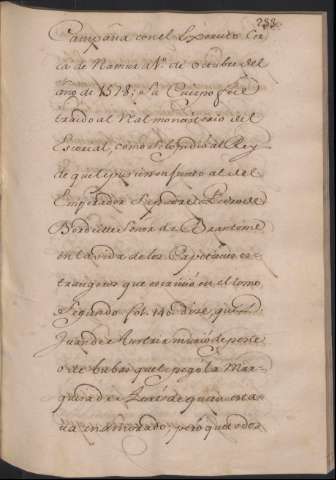 238
Campaña con el exercito cer
ca de Namur a 1º de octubre del
año de 1578; su Cuerpo fue
traido al Real monasterio del
Escorial, como se lo pidio al Rey
de que le pusiessen junto al del
Emperador su Padre. Pedro de
Bordeille Señor de Brantome
en la vida de los Capitanes es
trangeros que escriuió en el tomo
segundo fol. 140. dize, que
Juan de Austria murió de peste
o de bubas que le pegó la Mar
quesa de de quien esta
ua inamorado; pero que otros